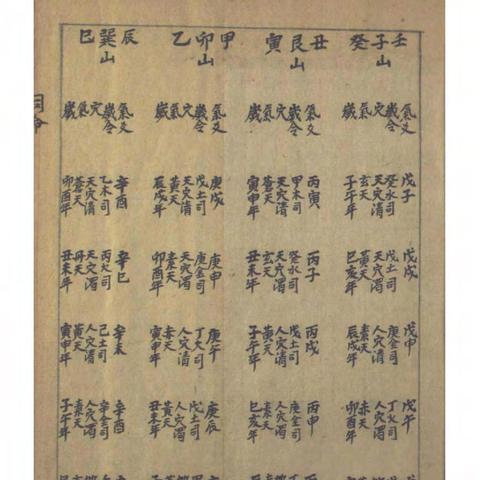 壬子癸
山
氣爻
歲令
穴
氣
歲
戊子
癸水司
天穴清
玄天
子午年
戊戌
戊土司
天穴濁
黃天
巳亥年
戊申
庚金司
人穴清
素天
辰戌年
戊午
丁火司
人穴濁
赤天
卯酉年
丑艮寅
山
氣爻
歲令
穴
氣
歲
丙寅
甲木司
天穴清
蒼天
寅申年
丙子
癸水司
天穴濁
玄天
丑未年
丙戌
戊土司
人穴清
黃天
子午年
丙申
庚金司
人穴濁
素天
巳亥年
甲卯乙
山
氣爻
歲令
穴
氣
歲
庚戌
戊土司
天穴清
黃天
辰戌年
庚申
庚金司
天穴濁
素天
卯酉年
庚午
丁火司
人穴清
赤天
寅申年
庚辰
戊土司
人穴濁
黃天
丑未年
辰巽巳
山
氣爻
歲令
穴
氣
歲
辛酉
乙木司
天穴清
蒼天
卯酉年
辛巳
丙火司
天穴濁
丹天
丑未年
辛未
己土司
人穴清
黃天
寅申年
辛酉
辛金司
人穴濁
素天
子午年